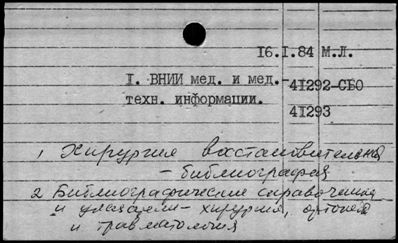 16.I.84 М.Л.
I. ВНИИ мед. и мед.-
41292-СБО
техн. информации.
41293
1 Хирургия восстановительная
– библиография
2 Библиографические справочники
и указатели – хирургия, ортопед
и травматология